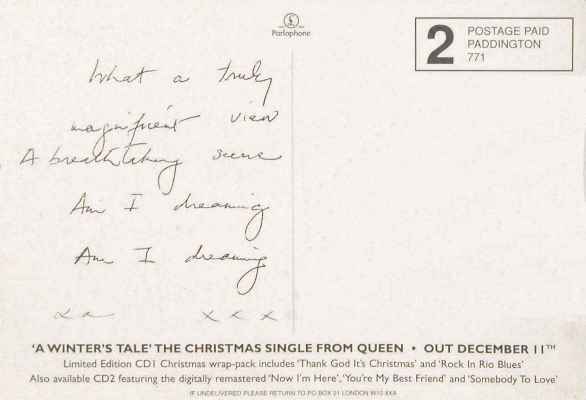 Parlophone
2 POSTAGE PAID
PADDINGTON
771
What a truly
magnificent view
A breathtaking scene
Am I dreaming
Am I dreaming
xxx
'A WINTER'S TALE' THE CHRISTMAS SINGLE FROM QUEEN • OUT DECEMBER 11TH
Limited Edition CD1 Christmas wrap-pack includes 'Thank God It's Christmas' and 'Rock In Rio Blues'
Also available CD2 featuring the digitally remastered 'Now I'm Here', 'You're My Best Friend' and 'Somebody To Love'
IF UNDELIVERED PLEASE RETURN TO PO BOX 21 LONDON W10 6XA